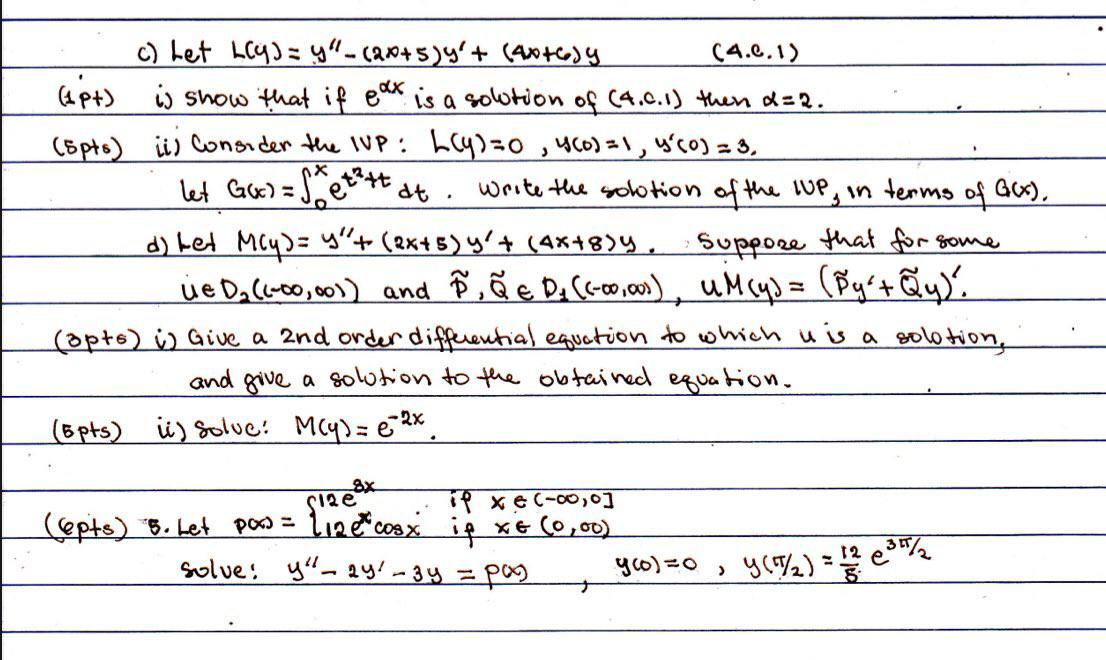 c) Let L(y) = y'' - (2x+5)y' + (4x+6)y (4.c.1)
(1pt) i) show that if e^{αx} is a solution of (4.c.1) then α=2.
(5pts) ii) Consider the IVP: L(y)=0, y(0)=1, y'(0)=3.
Let G(x) = ∫_0^x e^{t²+t} dt. Write the solution of the IVP, in terms of G(x).
d) Let M(y) = y'' + (2x+5)y' + (4x+8)y. Suppose that for some
u∈D₂((-∞,∞)) and P̃, Q̃ ∈ D₁((-∞,∞)), uM(y) = (P̃y' + Q̃y)'.
(3pts) i) Give a 2nd order differential equation to which u is a solution,
and give a solution to the obtained equation.
(5pts) ii) Solve: M(y) = e^{-2x}.
(6pts) 5. Let p(x) = { 12e^{3x} if x∈(-∞,0]
12e^x cosx if x∈(0,∞)
Solve: y'' - 2y' - 3y = p(x), y(0)=0, y(π/2) = 12/5 e^{3π/2}